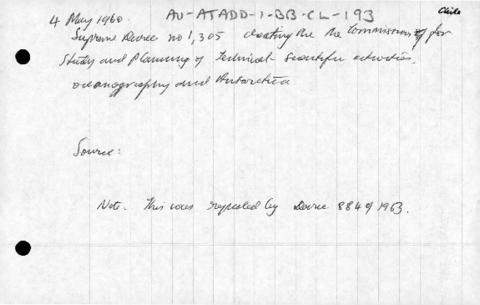 4 May 1960. AU-ATADD-1-BB-CL-193 Chile
Supreme Decree no 1,305 creating the Commission of for
Study and Planning of Technical-Scientific activities,
oceanography and Antarctica
Source:
Note. This was repealed by Decree 884 of 1963.